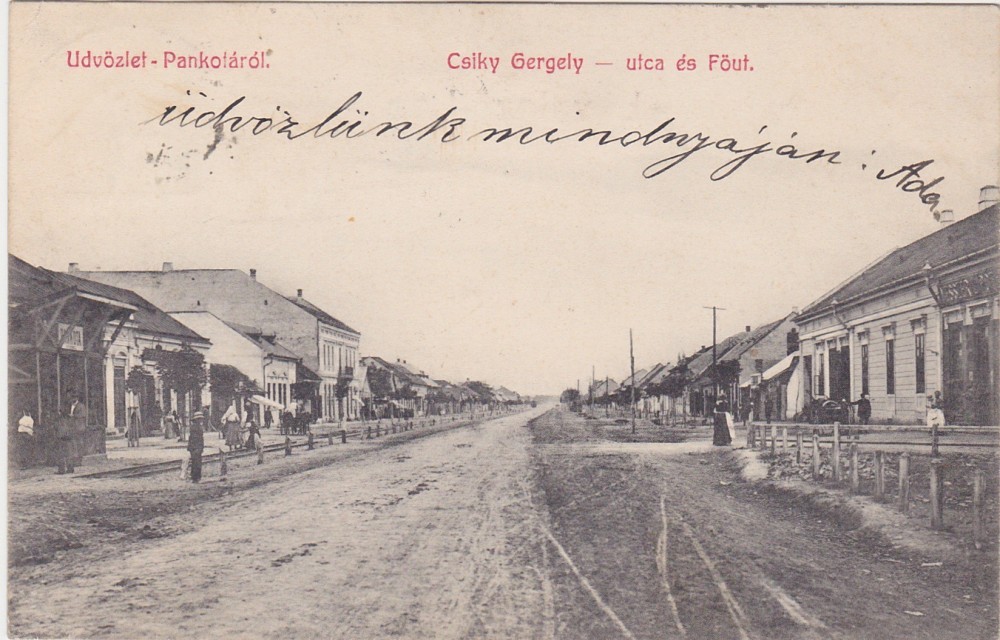 Udvözlet - Pankotáról.
Csiky Gergely — utca és Föut.
üdvözlünk mindnyáján: Ada